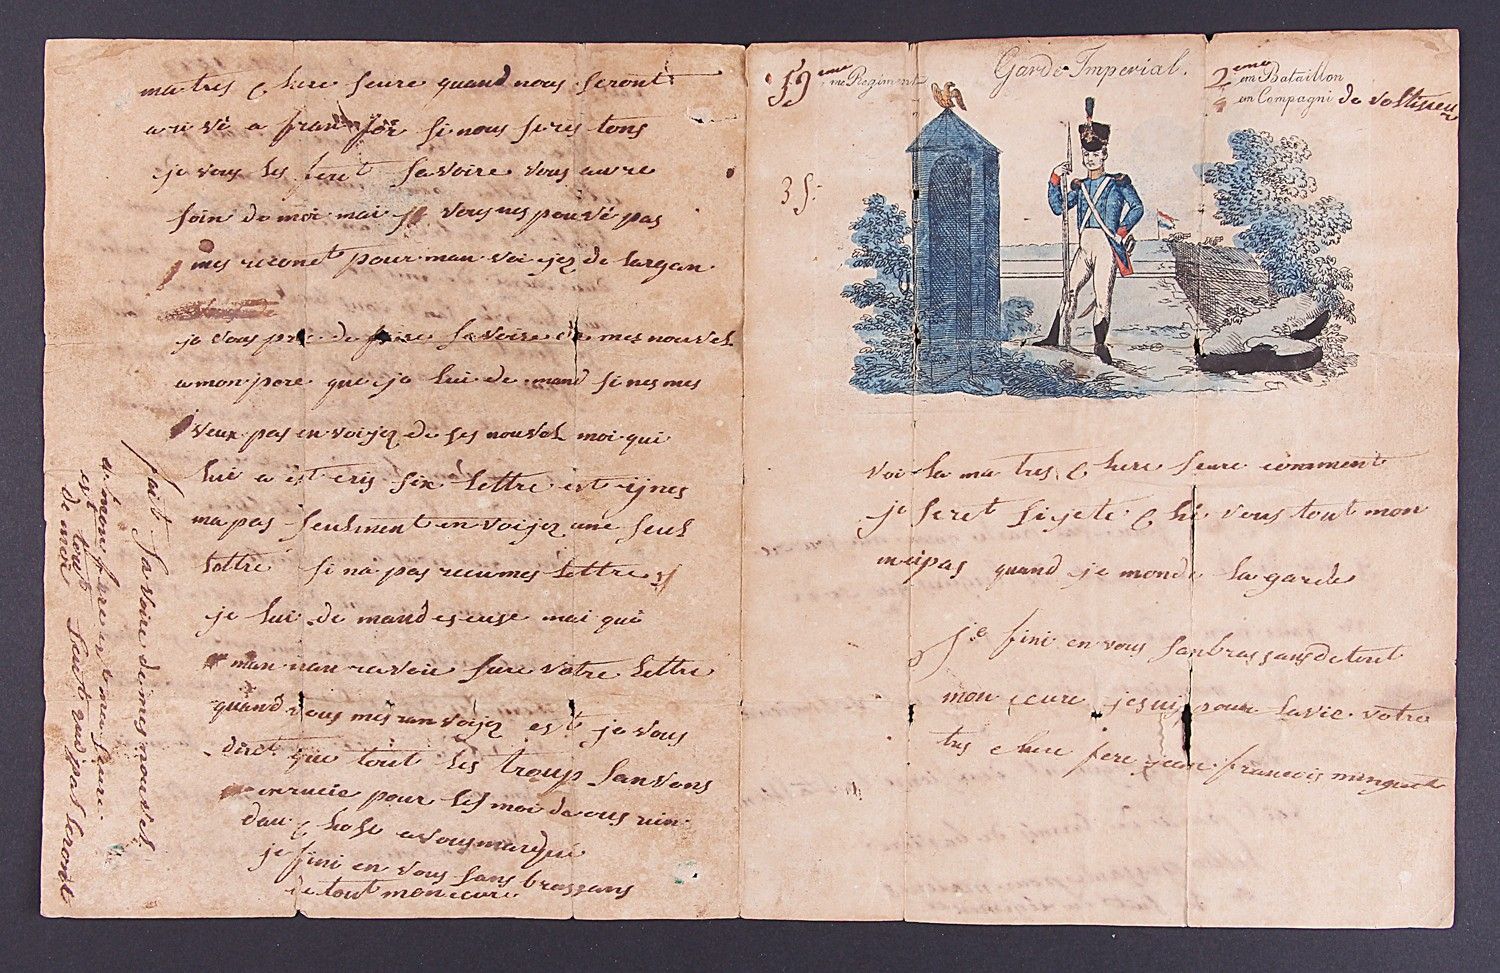 ma tres chere seure quand nous seront
a ri vé a fran for si nous seres tons
je vous les feret savoire vous aure
soin de moi mai je vous nes pouvé pas
mes reconet pour man voi yez de largan
je vous prie de faire savoire de mes nouvel
a mon pere que je lui de mand si nes mes
veux pas en voijez de ses nouvel moi qui
lui a est cris six lettre est ij nes
ma pas seulment en voijez une seul
lettre si na pas recu mes lettre
je lui de mand escuse mai qui
man nan ravoie seure votre lettre
quand vous mes ran vojez est je vous
diret que tout les troup sanvons
en rucie pour les moi de
dau chose a vous marqué
je fini en vous sans brassans
de tout mon cure
fait savoire de mes nouvel
a mon frere et ma seure
est tout seut qui pas leront
de moi
59 eme me Regiment
Garde Imperial.
2 eme em Bataillon
4 em Compagni de voltigeur
3 S.
voi la ma tres chere seure comment
je seret sijeté ché vous tout mon
ncipas quand je monde la garde
je fini en vous sanbrassans de tout
mon ceure je suij pour la vie votre
tres chere frere jean francois minguet